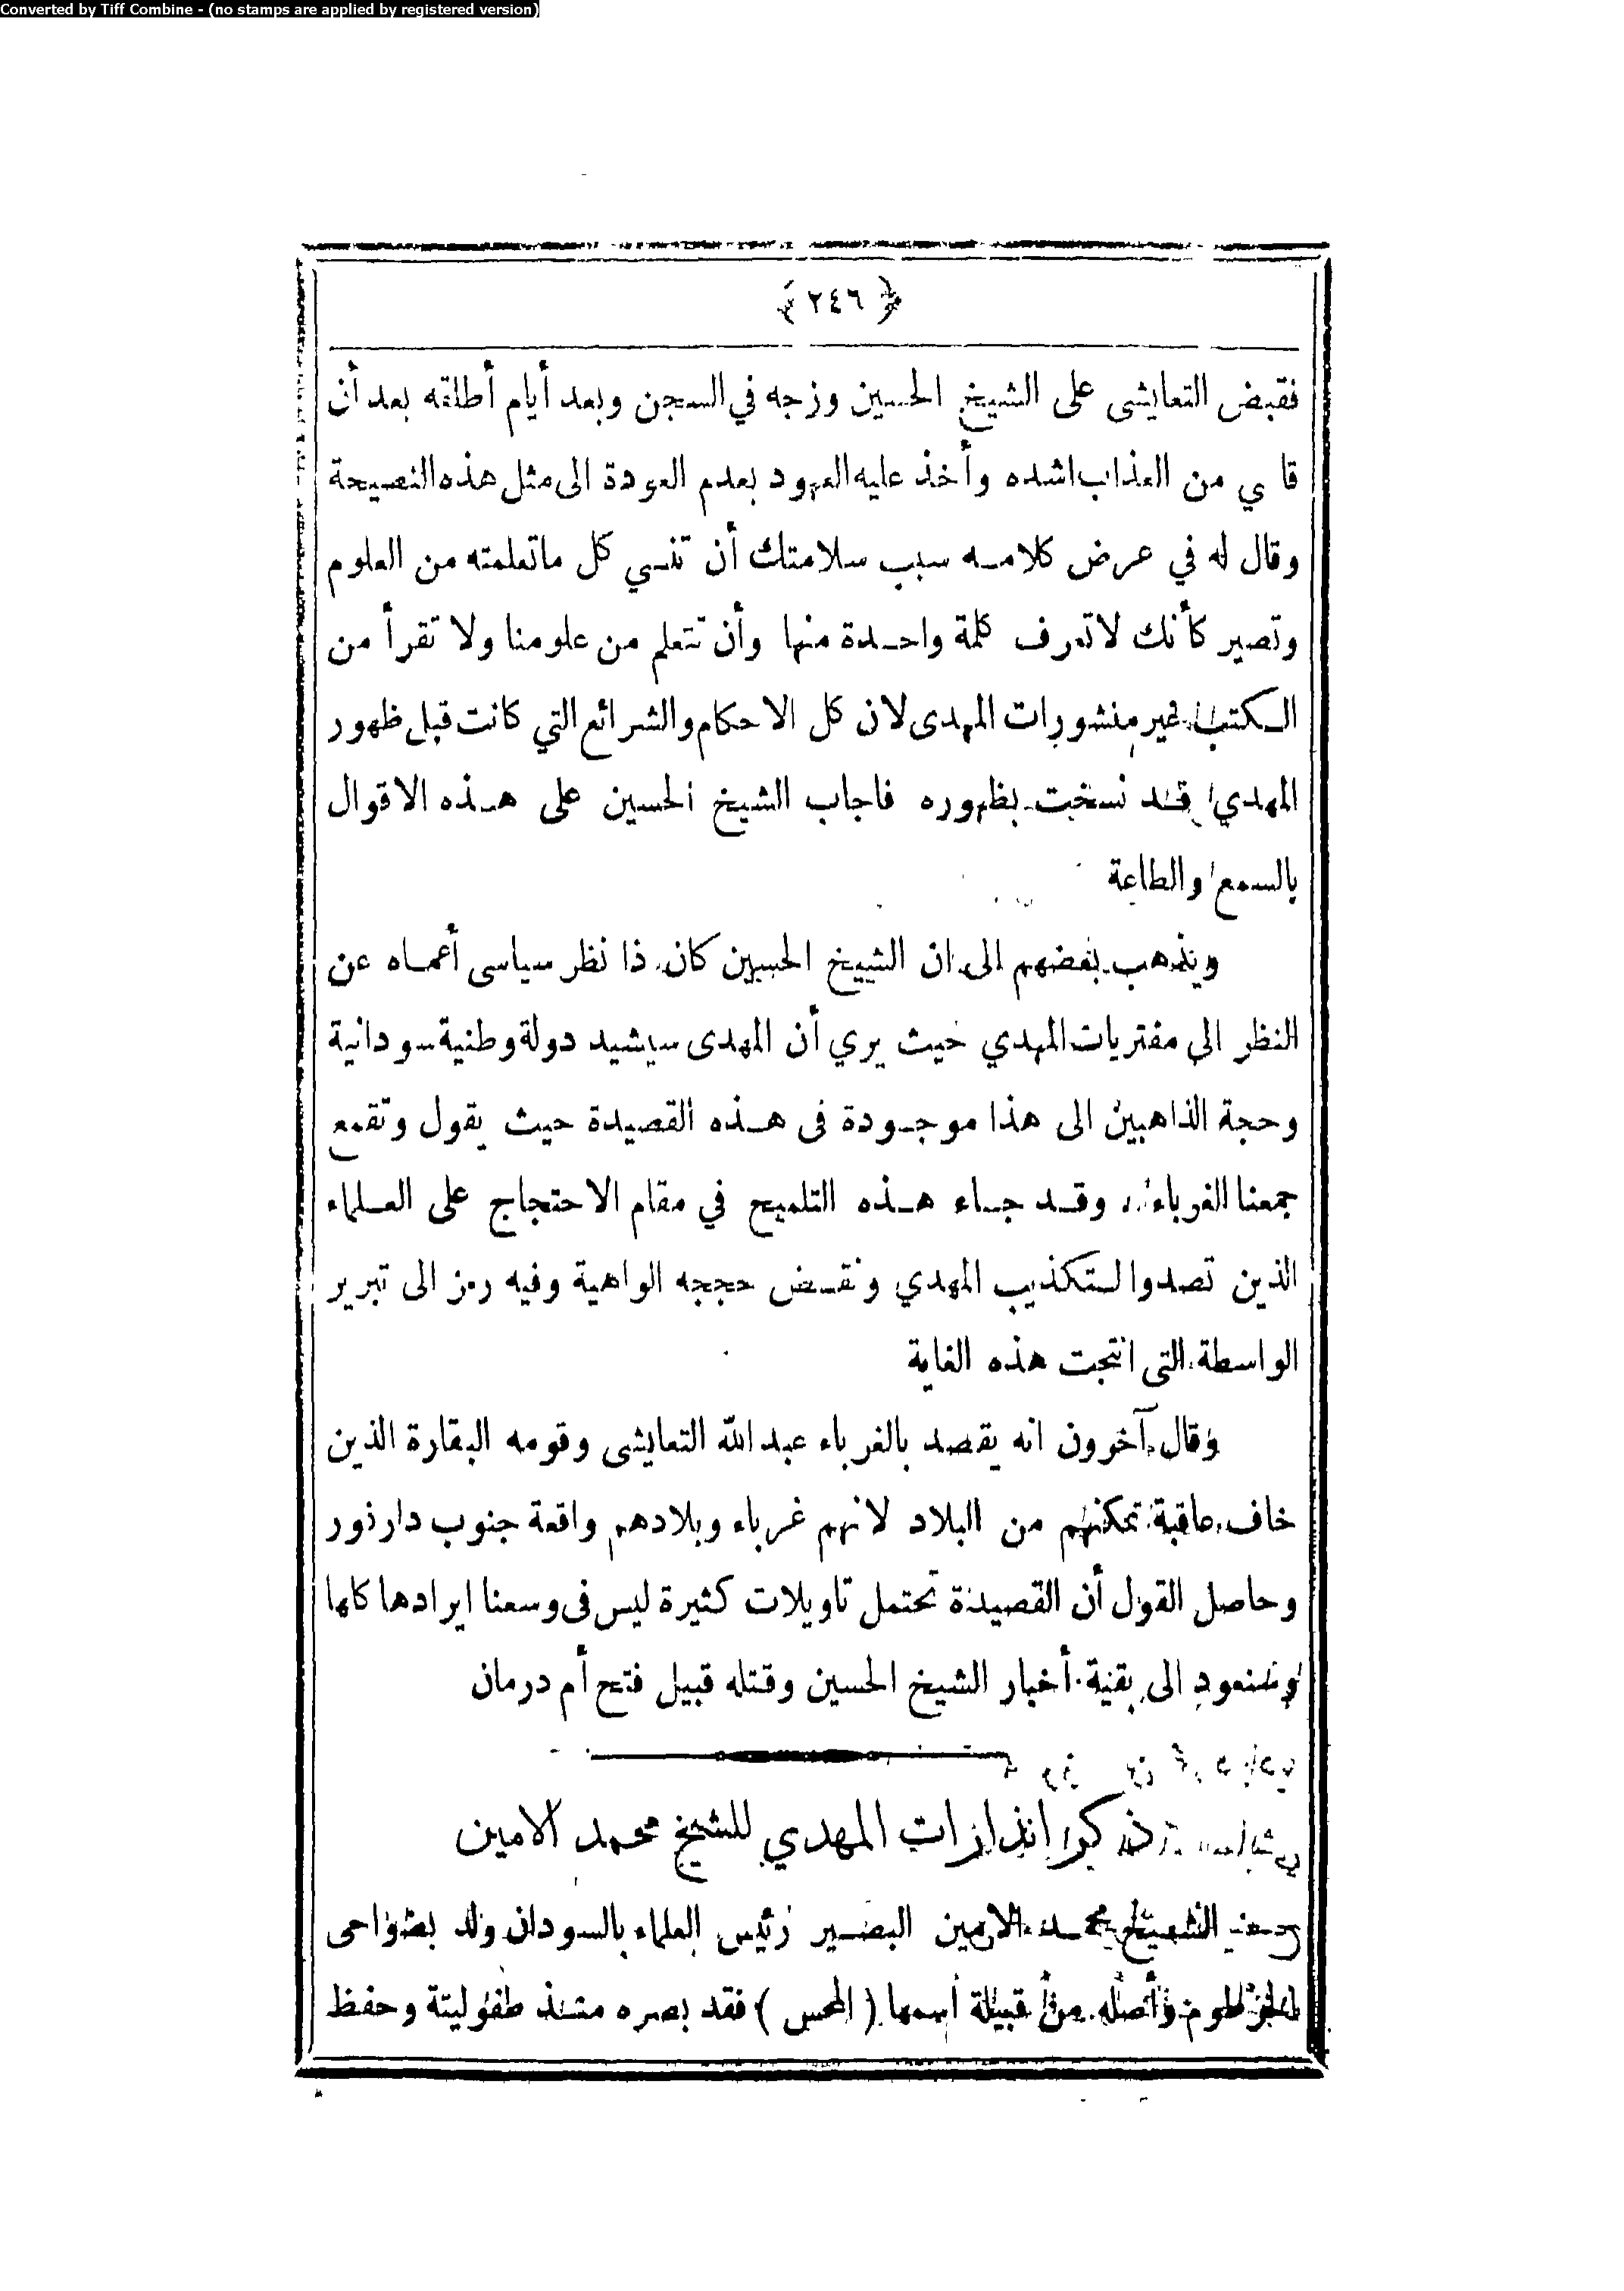 Converted by Tiff Combine - (no stamps are applied by registered version)
﴿ ٢٤٦ ﴾
فقبض التعايشى على الشيخ الحسين وزجه في السجن وبعد أيام أطلقه بعد أن
قاي من العذاب اشده وأخذ عليه العهود بعدم العودة الى مثل هذه النصيحة
وقال له في عرض كلامه سبب سلامتك أن تنسي كل ماتعلمته من العلوم
وتصير كأنك لاتعرف كلمة واحدة منها وأن تتعلم من علومنا ولا تقرأ من
الكتب غير منشورات المهدى لان كل الاحكام والشرائع التي كانت قبل ظهور
المهدي قد نسخت بظهوره فاجاب الشيخ الحسين على هذه الاقوال
بالسمع والطاعة
ويذهب بعضهم الى ان الشيخ الحسين كان ذا نظر سياسى أعماه عن
النظر الى مفتريات المهدي حيث يري أن المهدى سيشيد دولة وطنية سودانية
وحجة الذاهبين الى هذا موجودة فى هذه القصيدة حيث يقول وتقمع
جمعنا الغرباء ،، وقد جاء هذه التلميح في مقام الاحتجاج على العلماء
الذين تصدوا لتكذيب المهدي ونقض حججه الواهية وفيه رمز الى تبرير
الواسطة التى انتجت هذه الغاية
وقال آخرون انه يقصد بالغرباء عبد الله التعايشى وقومه البقارة الذين
خاف عاقبة تمكنهم من البلاد لانهم غرباء وبلادهم واقعة جنوب دارفور
وحاصل القول أن القصيدة تحتمل تاويلات كثيرة ليس فى وسعنا ايرادها كلها
وسنعود الى بقية أخبار الشيخ الحسين وقتله قبيل فتح أم درمان
ذكر انذارات المهدي للشيخ محمد الامين
الشيخ محمد الامين البصير رئيس العلماء بالسودان ولد بضواحى
الخرطوم وأصله من قبيلة اسمها ( المحس ) فقد بصره منذ طفوليتة وحفظ